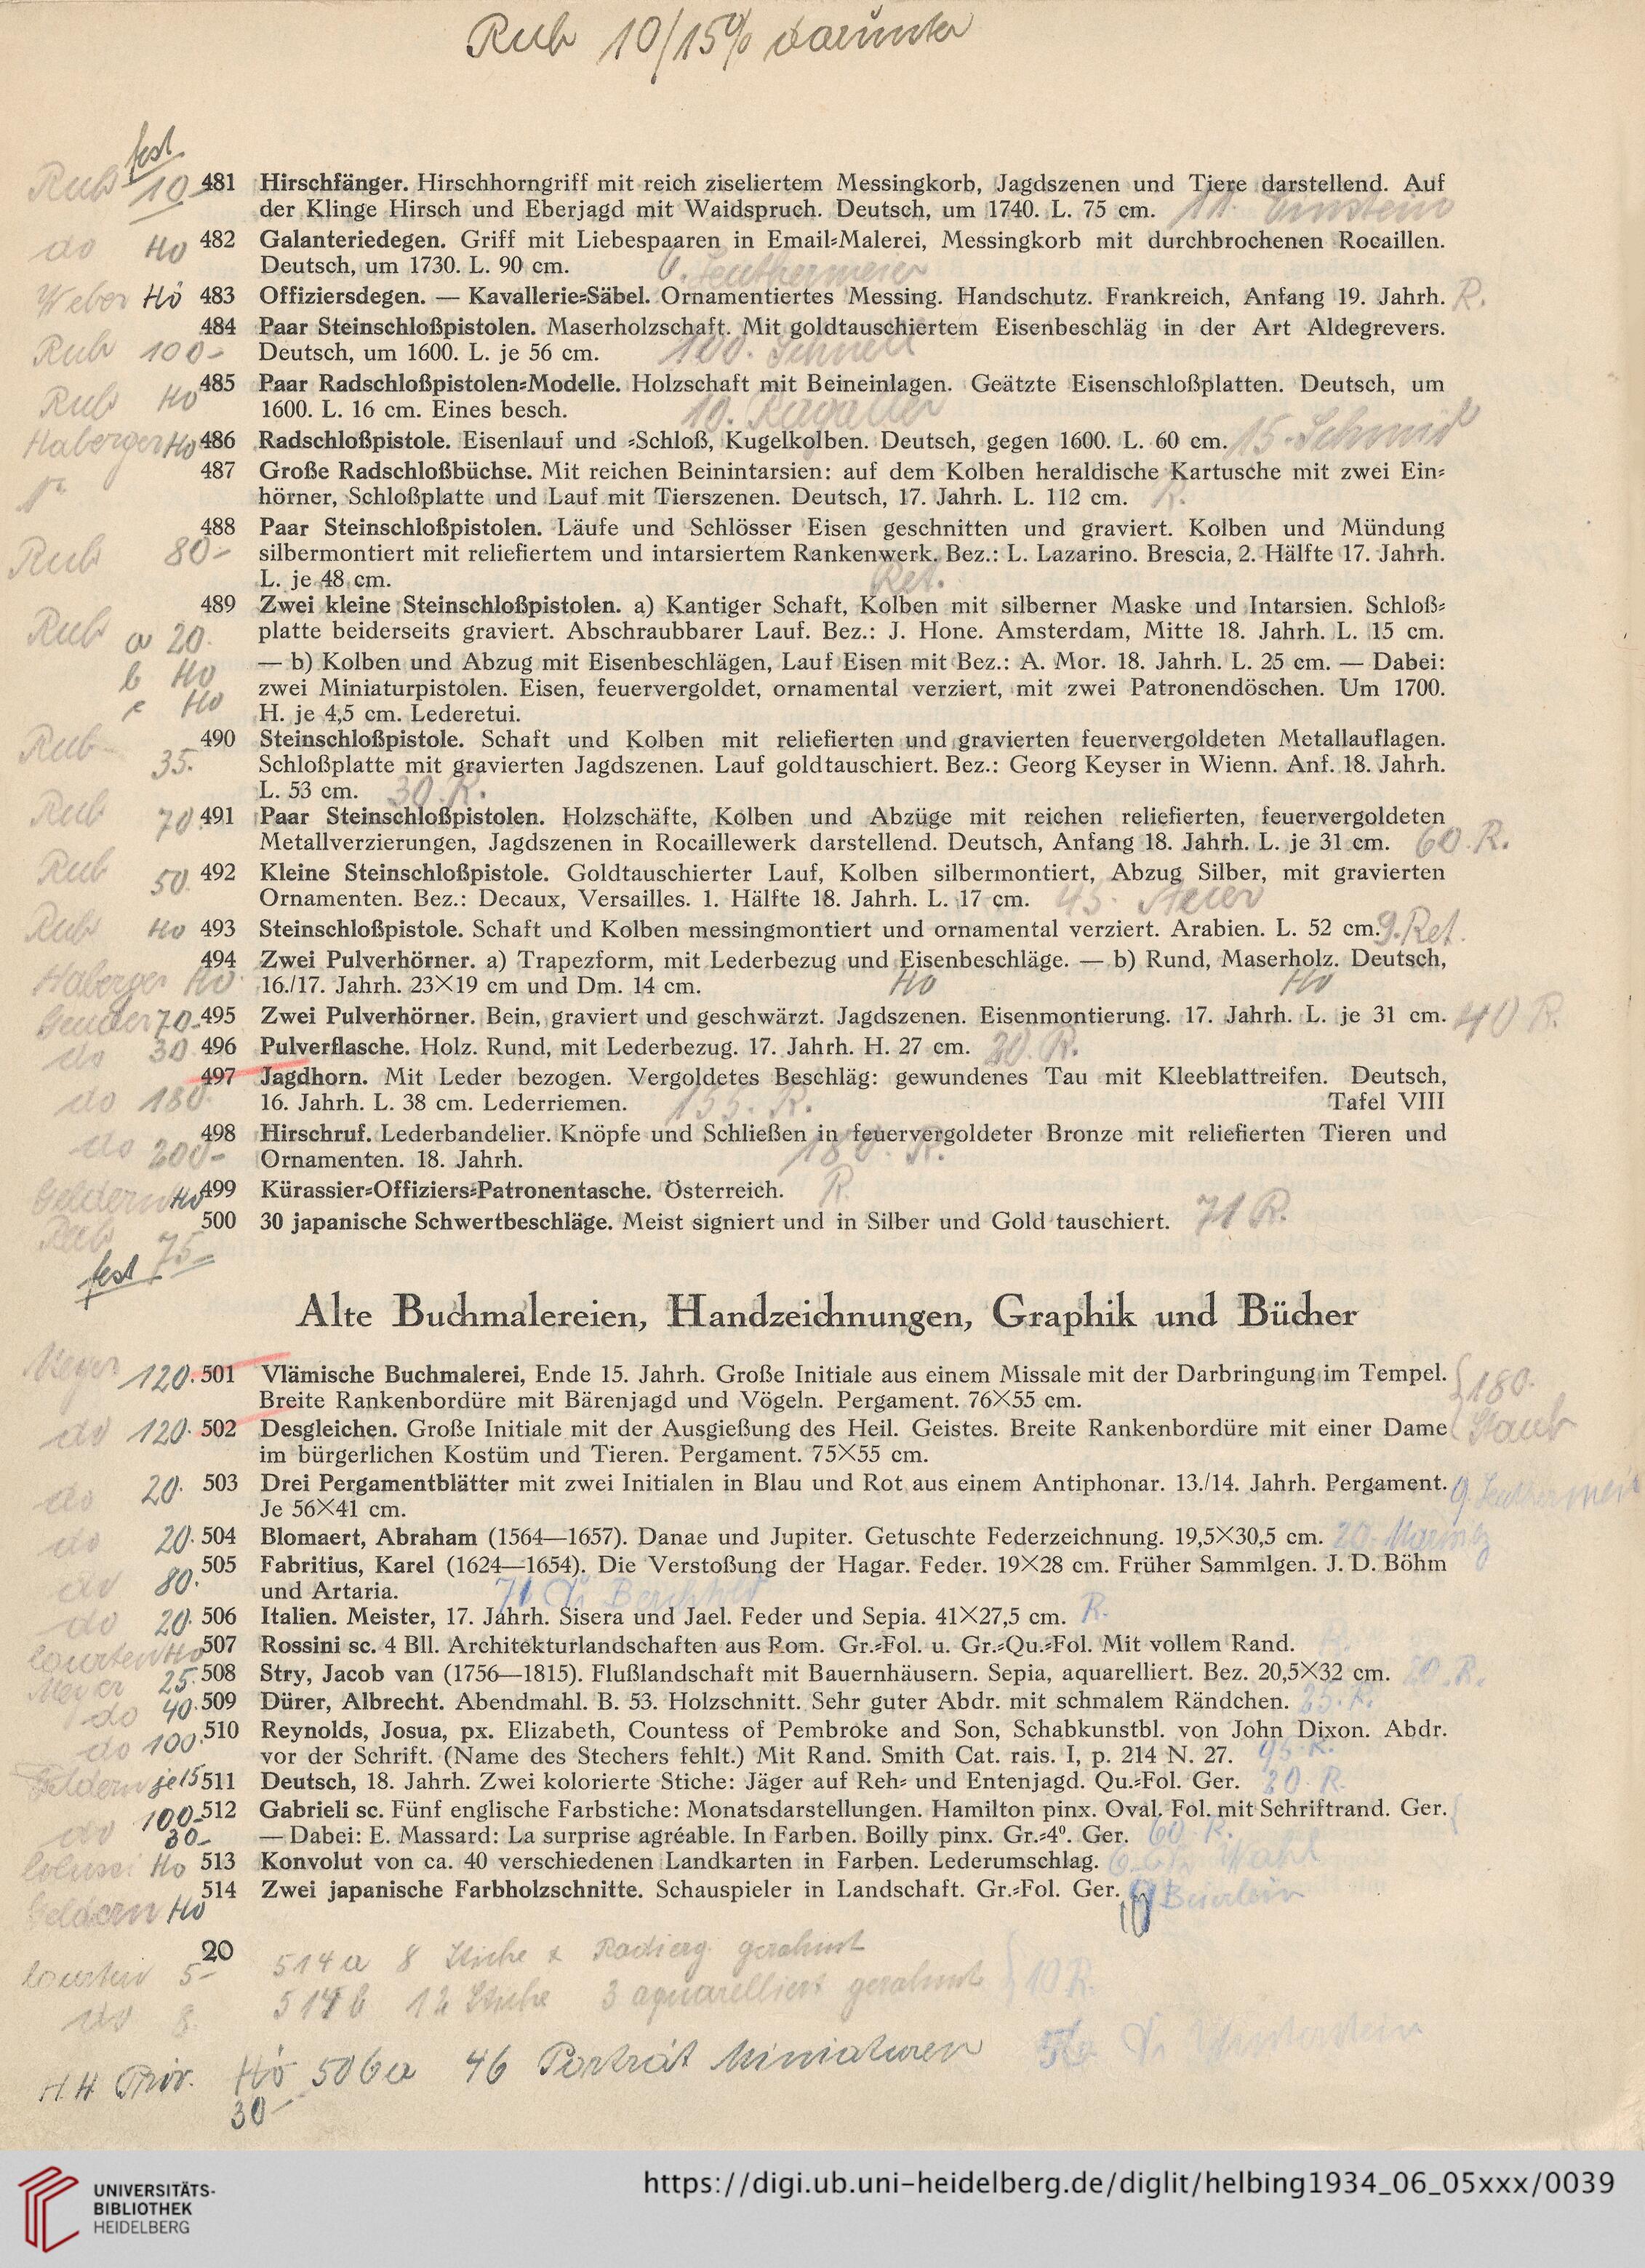 Rub 10/15% darunter
fest
Rub 10 481 Hirschfänger. Hirschhorngriff mit reich ziseliertem Messingkorb, Jagdszenen und Tiere darstellend. Auf
der Klinge Hirsch und Eberjagd mit Waidspruch. Deutsch, um 1740. L. 75 cm. 11. Einstein
do Ho 482 Galanteriedegen. Griff mit Liebespaaren in Email⸗Malerei, Messingkorb mit durchbrochenen Rocaillen.
Deutsch, um 1730. L. 90 cm.
Weber Hö 483 Offiziersdegen. — Kavallerie⸗Säbel. Ornamentiertes Messing. Handschutz. Frankreich, Anfang 19. Jahrh. R.
484 Paar Steinschloßpistolen. Maserholzschaft. Mit goldtauschiertem Eisenbeschläg in der Art Aldegrevers.
Rub 100- Deutsch, um 1600. L. je 56 cm. 100. Schnell
Rub Ho 485 Paar Radschloßpistolen⸗Modelle. Holzschaft mit Beineinlagen. Geätzte Eisenschloßplatten. Deutsch, um
1600. L. 16 cm. Eines besch. 10.
Haberger Ho 486 Radschloßpistole. Eisenlauf und ⸗Schloß, Kugelkolben. Deutsch, gegen 1600. L. 60 cm. 15. Schmid
487 Große Radschloßbüchse. Mit reichen Beinintarsien: auf dem Kolben heraldische Kartusche mit zwei Ein⸗
hörner, Schloßplatte und Lauf mit Tierszenen. Deutsch, 17. Jahrh. L. 112 cm. R.
488 Paar Steinschloßpistolen. Läufe und Schlösser Eisen geschnitten und graviert. Kolben und Mündung
Rub 80- silbermontiert mit reliefiertem und intarsiertem Rankenwerk. Bez.: L. Lazarino. Brescia, 2. Hälfte 17. Jahrh.
L. je 48 cm. Ret.
489 Zwei kleine Steinschloßpistolen. a) Kantiger Schaft, Kolben mit silberner Maske und Intarsien. Schloß⸗
Rub a 20. platte beiderseits graviert. Abschraubbarer Lauf. Bez.: J. Hone. Amsterdam, Mitte 18. Jahrh. L. 15 cm.
b Ho — b) Kolben und Abzug mit Eisenbeschlägen, Lauf Eisen mit Bez.: A. Mor. 18. Jahrh. L. 25 cm. — Dabei:
c Ho zwei Miniaturpistolen. Eisen, feuervergoldet, ornamental verziert, mit zwei Patronendöschen. Um 1700.
H. je 4,5 cm. Lederetui.
Rub 490 Steinschloßpistole. Schaft und Kolben mit reliefierten und gravierten feuervergoldeten Metallauflagen.
35. Schloßplatte mit gravierten Jagdszenen. Lauf goldtauschiert. Bez.: Georg Keyser in Wienn. Anf. 18. Jahrh.
L. 53 cm. 30. R.
Rub 70 491 Paar Steinschloßpistolen. Holzschäfte, Kolben und Abzüge mit reichen reliefierten, feuervergoldeten
Metallverzierungen, Jagdszenen in Rocaillewerk darstellend. Deutsch, Anfang 18. Jahrh. L. je 31 cm. 60. R.
Rub 50. 492 Kleine Steinschloßpistole. Goldtauschierter Lauf, Kolben silbermontiert, Abzug Silber, mit gravierten
Ornamenten. Bez.: Decaux, Versailles. 1. Hälfte 18. Jahrh. L. 17 cm. 45.
Rub Ho 493 Steinschloßpistole. Schaft und Kolben messingmontiert und ornamental verziert. Arabien. L. 52 cm. 9. Ret.
494 Zwei Pulverhörner. a) Trapezform, mit Lederbezug und Eisenbeschläge. — b) Rund, Maserholz. Deutsch,
Haberger Ho 16./17. Jahrh. 23×19 cm und Dm. 14 cm. Ho Ho
70.- 495 Zwei Pulverhörner. Bein, graviert und geschwärzt. Jagdszenen. Eisenmontierung. 17. Jahrh. L. je 31 cm. 40 R.
do 30 496 Pulverflasche. Holz. Rund, mit Lederbezug. 17. Jahrh. H. 27 cm. 20. R.
497 Jagdhorn. Mit Leder bezogen. Vergoldetes Beschläg: gewundenes Tau mit Kleeblattreifen. Deutsch,
do 180. 16. Jahrh. L. 38 cm. Lederriemen. 155. R. Tafel VIII
498 Hirschruf. Lederbandelier. Knöpfe und Schließen in feuervergoldeter Bronze mit reliefierten Tieren und
do 200- Ornamenten. 18. Jahrh. 180. R.
Geldern Ho 499 Kürassier⸗Offiziers⸗Patronentasche. Österreich. R.
Rub 75- 500 30 japanische Schwertbeschläge. Meist signiert und in Silber und Gold tauschiert. 71 R.
fest
Alte Buchmalereien, Handzeichnungen, Graphik und Bücher
Meyer 120. 501 Vlämische Buchmalerei, Ende 15. Jahrh. Große Initiale aus einem Missale mit der Darbringung im Tempel. 180.
Breite Rankenbordüre mit Bärenjagd und Vögeln. Pergament. 76×55 cm.
do 120. 502 Desgleichen. Große Initiale mit der Ausgießung des Heil. Geistes. Breite Rankenbordüre mit einer Dame Staub
im bürgerlichen Kostüm und Tieren. Pergament. 75×55 cm.
do 20. 503 Drei Pergamentblätter mit zwei Initialen in Blau und Rot aus einem Antiphonar. 13./14. Jahrh. Pergament.
Je 56×41 cm.
do 20. 504 Blomaert, Abraham (1564—1657). Danae und Jupiter. Getuschte Federzeichnung. 19,5×30,5 cm. 20.
do 80. 505 Fabritius, Karel (1624—1654). Die Verstoßung der Hagar. Feder. 19×28 cm. Früher Sammlgen. J. D. Böhm
und Artaria. 71
do 20. 506 Italien. Meister, 17. Jahrh. Sisera und Jael. Feder und Sepia. 41×27,5 cm. R.
Ho 507 Rossini sc. 4 Bll. Architekturlandschaften aus Rom. Gr.⸗Fol. u. Gr.⸗Qu.⸗Fol. Mit vollem Rand.
Meyer 25. 508 Stry, Jacob van (1756—1815). Flußlandschaft mit Bauernhäusern. Sepia, aquarelliert. Bez. 20,5×32 cm. 20. R.
do 40. 509 Dürer, Albrecht. Abendmahl. B. 53. Holzschnitt. Sehr guter Abdr. mit schmalem Rändchen. 25. R.
do 100. 510 Reynolds, Josua, px. Elizabeth, Countess of Pembroke and Son, Schabkunstbl. von John Dixon. Abdr.
vor der Schrift. (Name des Stechers fehlt.) Mit Rand. Smith Cat. rais. I, p. 214 N. 27. 95. R.
Geldern je 15 511 Deutsch, 18. Jahrh. Zwei kolorierte Stiche: Jäger auf Reh⸗ und Entenjagd. Qu.⸗Fol. Ger. 20. R.
do 100.- 512 Gabrieli sc. Fünf englische Farbstiche: Monatsdarstellungen. Hamilton pinx. Oval. Fol. mit Schriftrand. Ger.
30.- — Dabei: E. Massard: La surprise agréable. In Farben. Boilly pinx. Gr.⸗4⁰. Ger. 60. R.
Ho 513 Konvolut von ca. 40 verschiedenen Landkarten in Farben. Lederumschlag.
Geldern Ho 514 Zwei japanische Farbholzschnitte. Schauspieler in Landschaft. Gr.⸗Fol. Ger.
20
5- 514 a 8 Stiche & Radierg. gerahmt
do 8. 514 b 12 Stiche 3 aquarelliert gerahmt 10 R.
HH Priv. Hö 506a 46 Porträt Miniaturen
30-
UNIVERSITÄTS-
BIBLIOTHEK
HEIDELBERG
https://digi.ub.uni-heidelberg.de/diglit/helbing1934_06_05xxx/0039